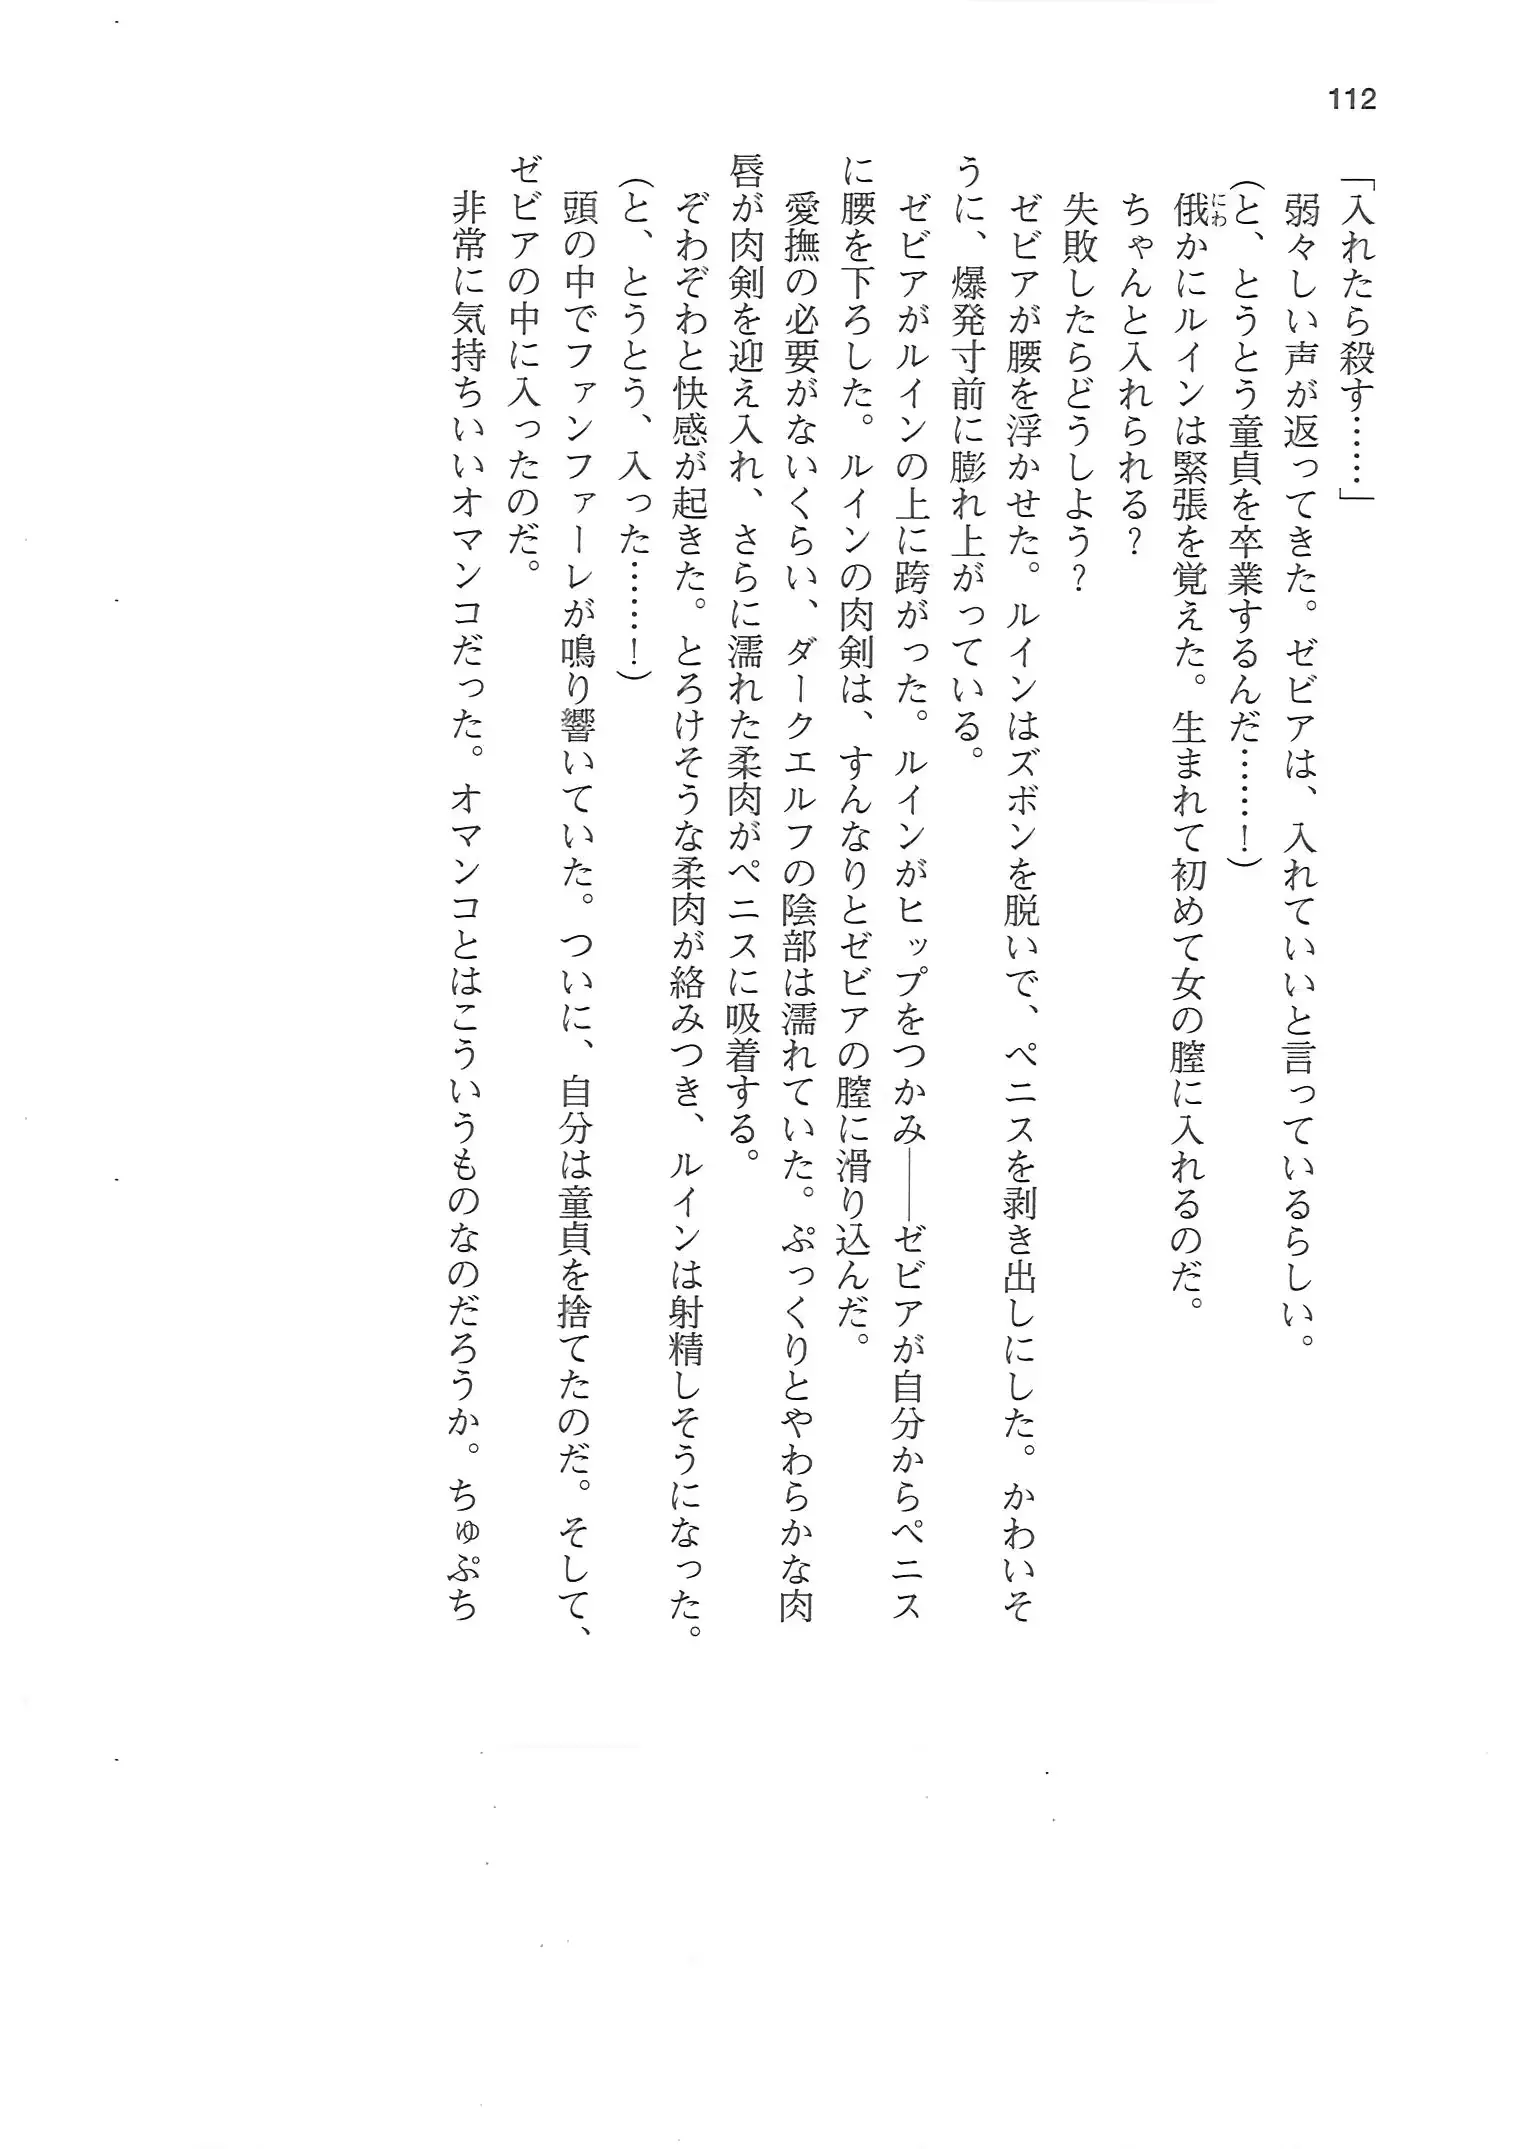 112
「入れたら殺す……」
弱々しい声が返ってきた。ゼビアは、入れていいと言っているらしい。
(と、とうとう童貞を卒業するんだ……！)
俄かにルインは緊張を覚えた。生まれて初めて女の膣に入れるのだ。
にわ
ちゃんと入れられる？
失敗したらどうしよう？
ゼビアが腰を浮かせた。ルインはズボンを脱いで、ペニスを剥き出しにした。かわいそ
うに、爆発寸前に膨れ上がっている。
ゼビアがルインの上に跨がった。ルインがヒップをつかみ――ゼビアが自分からペニス
に腰を下ろした。ルインの肉剣は、すんなりとゼビアの膣に滑り込んだ。
愛撫の必要がないくらい、ダークエルフの陰部は濡れていた。ぷっくりとやわらかな肉
唇が肉剣を迎え入れ、さらに濡れた柔肉がペニスに吸着する。
ぞわぞわと快感が起きた。とろけそうな柔肉が絡みつき、ルインは射精しそうになった。
(と、とうとう、入った……！)
頭の中でファンファーレが鳴り響いていた。ついに、自分は童貞を捨てたのだ。そして、
ゼビアの中に入ったのだ。
非常に気持ちいいオマンコだった。オマンコとはこういうものなのだろうか。ちゅぷち